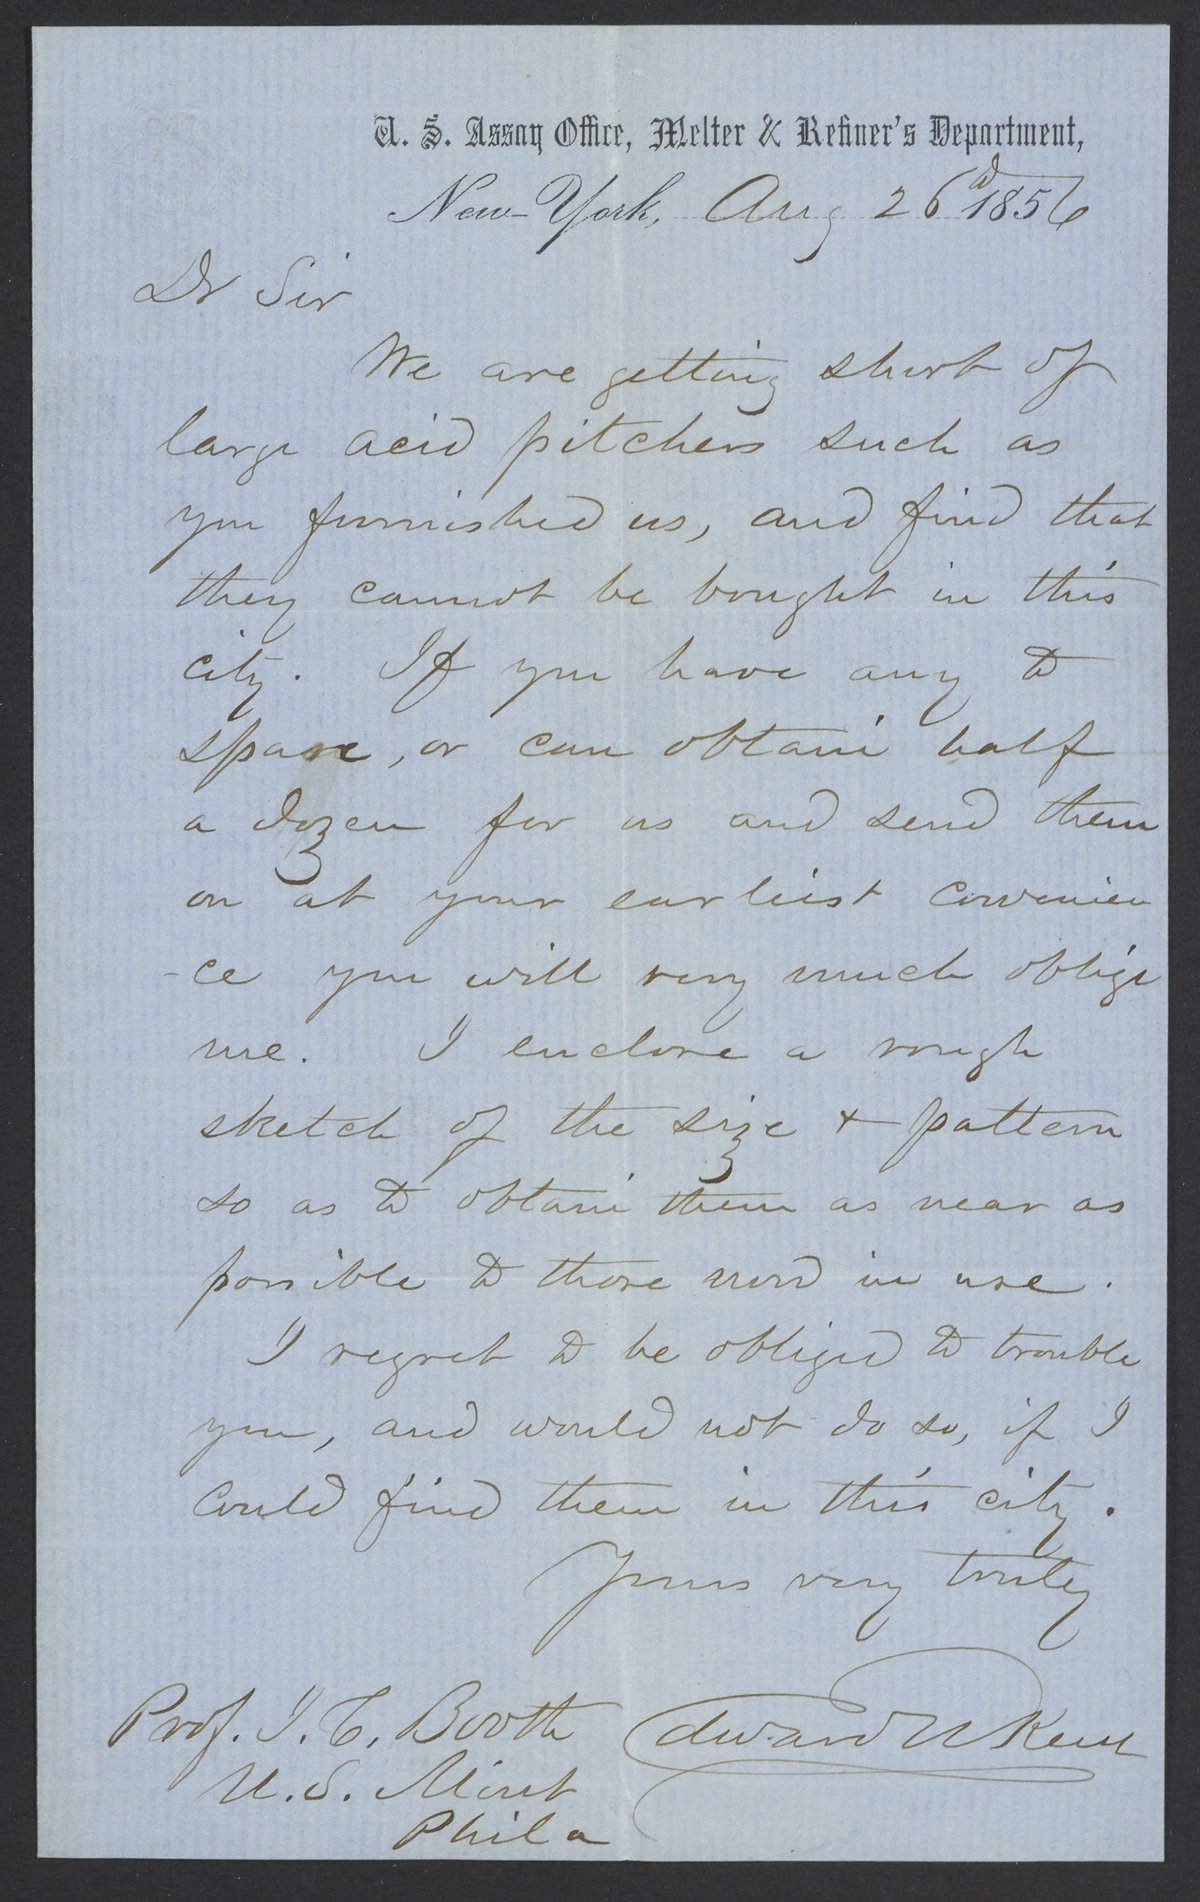 U. S. Assay Office, Melter & Refiner's Department,
New-York, Aug 26d 1856
Dr Sir
We are getting short of
large acid pitchers such as
you furnished us, and find that
they cannot be bought in this
city. If you have any to
spare, or can obtain half
a dozen for us and send them
on at your earliest convenien
-ce you will very much oblige
me. I enclose a rough
sketch of the size & pattern
so as to obtain them as near as
possible to those now in use.
I regret to be obliged to trouble
you, and would not do so, if I
could find them in this city.
Yours very truly
Edward N Kent
Prof. J. C. Booth
U. S. Mint
Phila